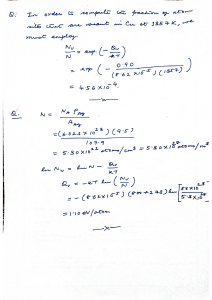 Q: In order to compute the fraction of atom
sites that are vacant in Cu at 1357 K, we
must employ
Nv/N = exp (- Qv/kT)
= exp (- 0.90 / (8.62 × 10⁻⁵)(1357))
= 4.56 × 10⁻⁴
Q: N = NA ρAg / AAg
= (6.023 × 10²³)(9.5) / 107.9
= 5.30 × 10²² atoms/cm³ = 5.30 × 10²⁸
ln Nv = ln N - Qv/kT
Qv = -kT ln (Nv/N)
= -(8.62 × 10⁻⁵)
= 1.10 eV/atom